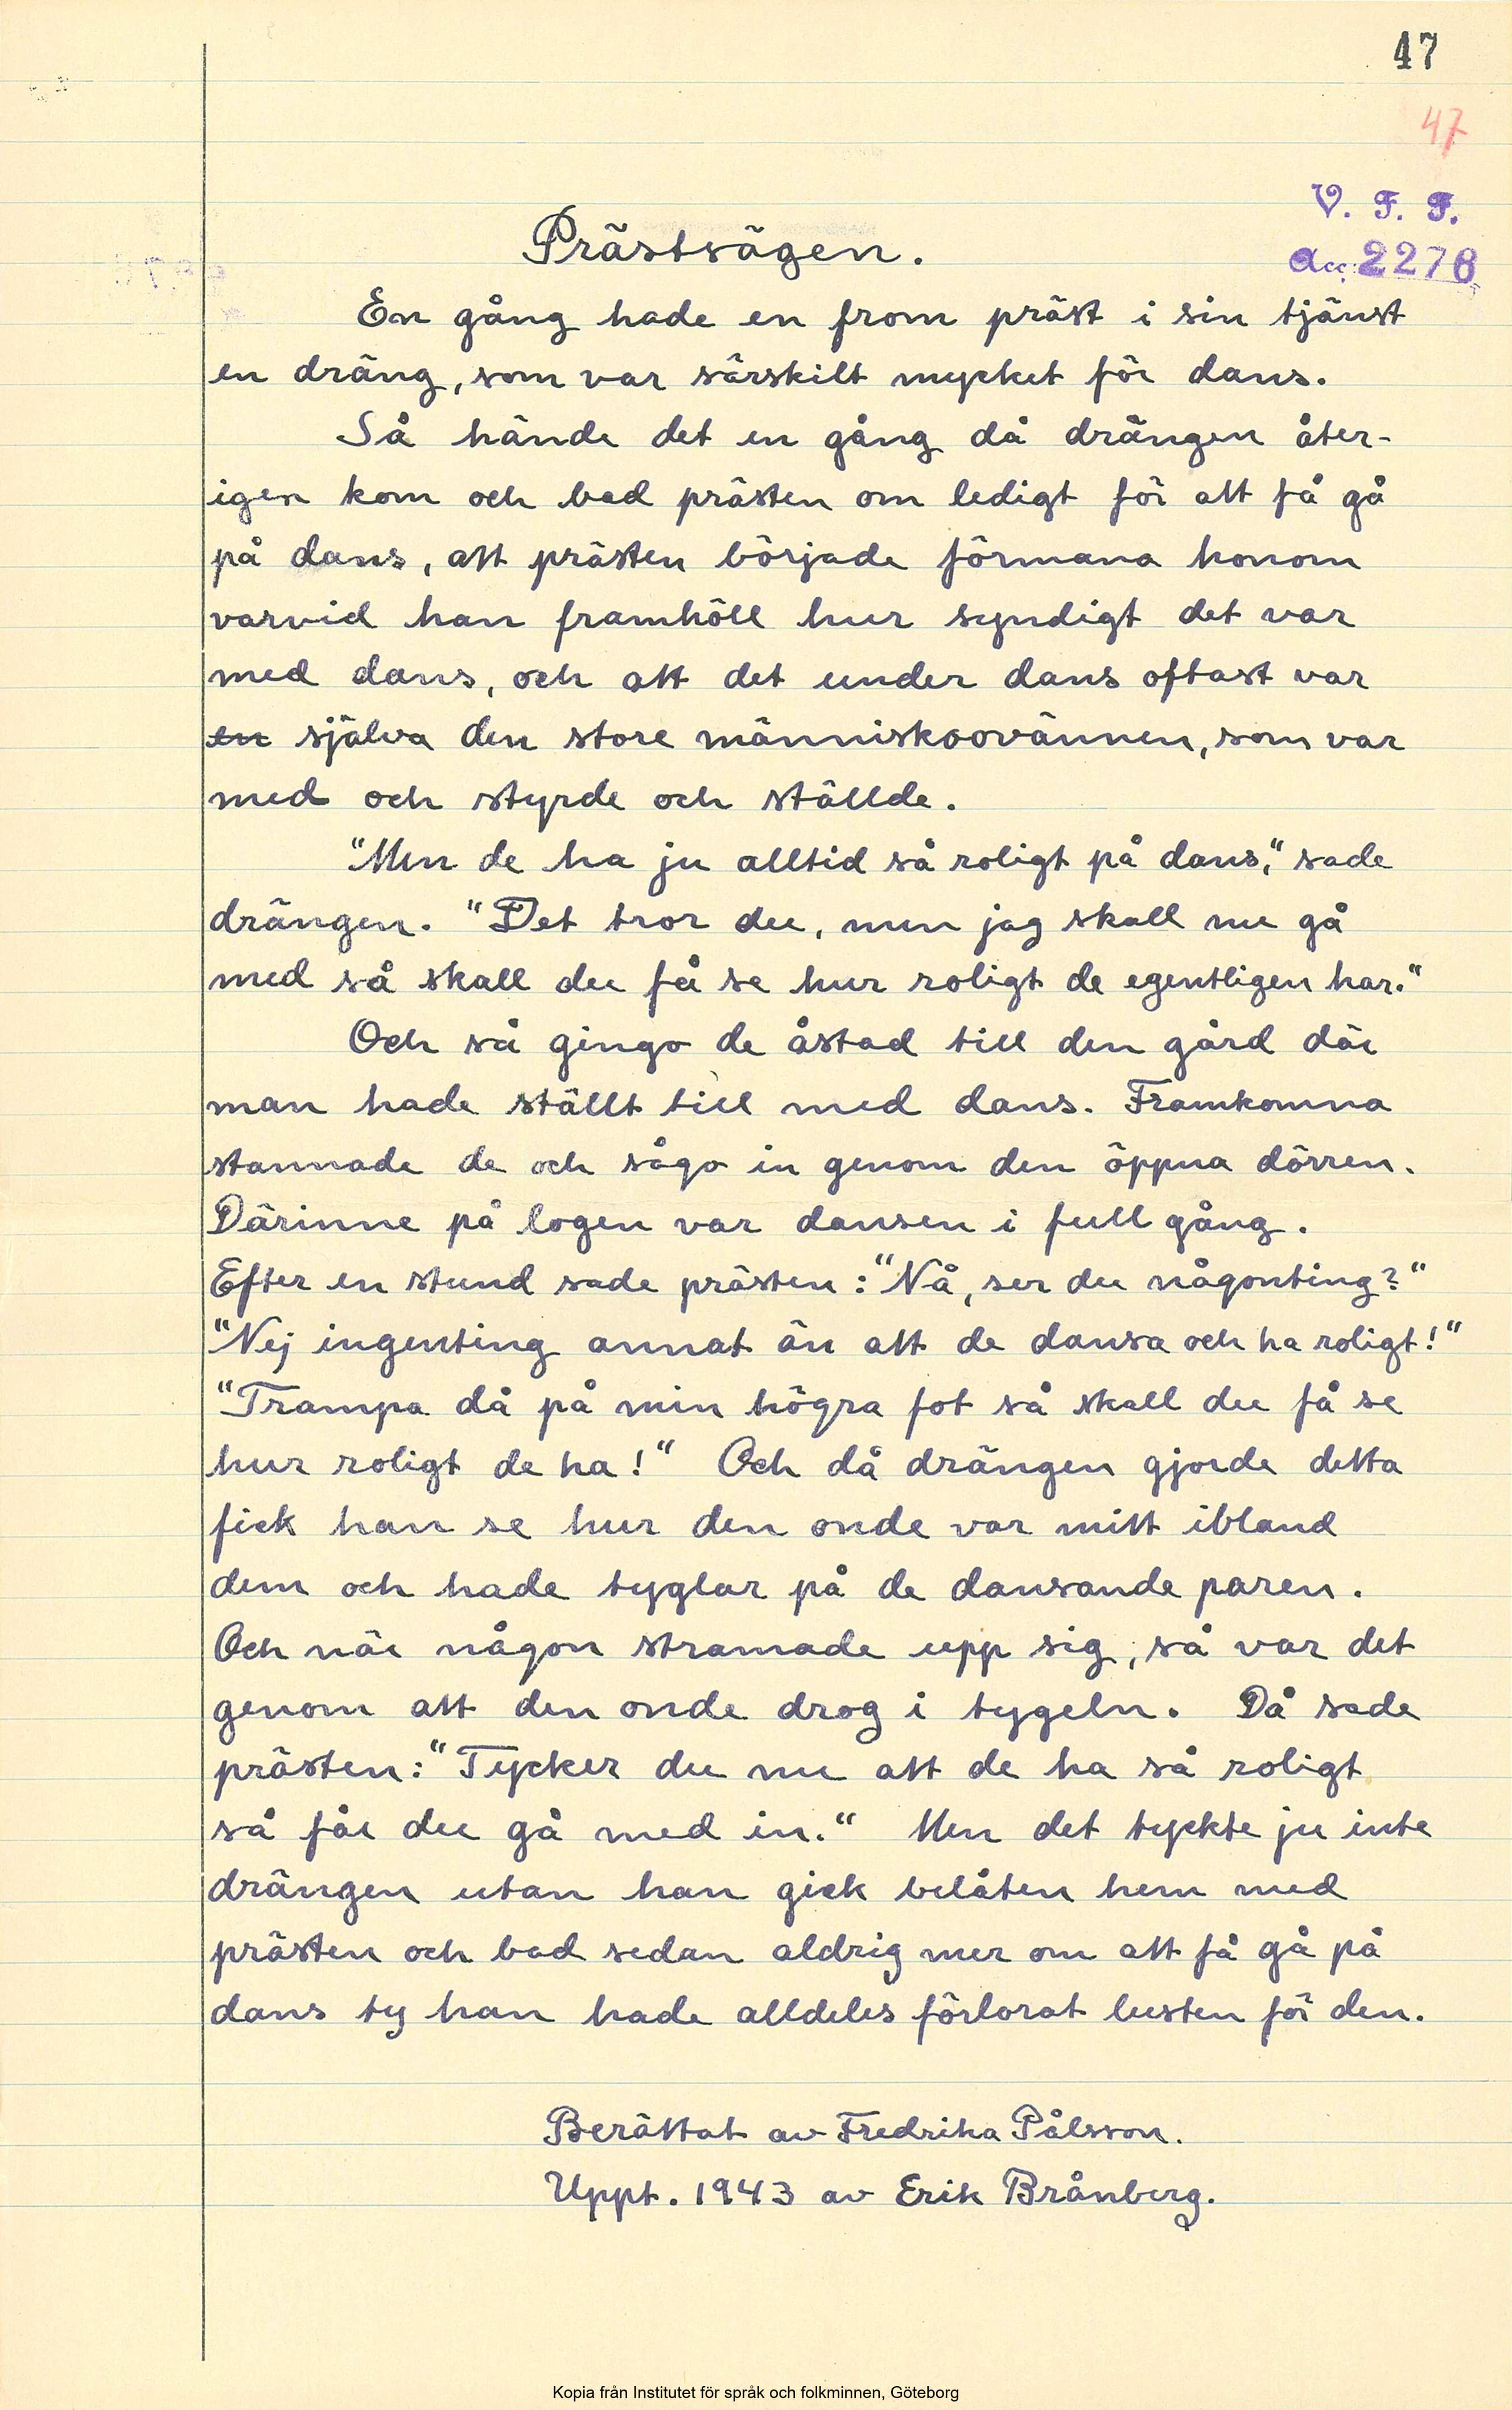 47
47
V. F. F.
Acc. 2276
Prästsägen.
En gång hade en from präst i sin tjänst
en dräng, som var särskilt mycket för dans.
Så hände det en gång då drängen åter-
igen kom och bad prästen om ledigt för att få gå
på dans, att prästen började förmana honom
varvid han framhöll hur syndigt det var
med dans, och att det under dans oftast var
en själva den store människoovännen, som var
med och styrde och ställde.
"Men de ha ju alltid så roligt på dans," sade
drängen. "Det tror du, men jag skall nu gå
med så skall du få se hur roligt de egentligen har."
Och så gingo de åstad till den gård där
man hade ställt till med dans. Framkomna
stannade de och sågo in genom den öppna dörren.
Därinne på logen var dansen i full gång.
Efter en stund sade prästen: "Nå, ser du någonting?"
"Nej ingenting annat än att de dansa och ha roligt!"
"Trampa då på min högra fot så skall du få se
hur roligt de ha!" Och då drängen gjorde detta
fick han se hur den onde var mitt ibland
dem och hade tyglar på de dansande paren.
Och när någon stramade upp sig, så var det
genom att den onde drog i tygeln. Då sade
prästen: "Tycker du nu att de ha så roligt
så får du gå med in." Men det tyckte ju inte
drängen utan han gick belåten hem med
prästen och bad sedan aldrig mer om att få gå på
dans ty han hade alldeles förlorat lusten för den.
Berättat av Fredrika Pålsson.
Uppt. 1943 av Erik Brånberg.
Kopia från Institutet för språk och folkminnen, Göteborg